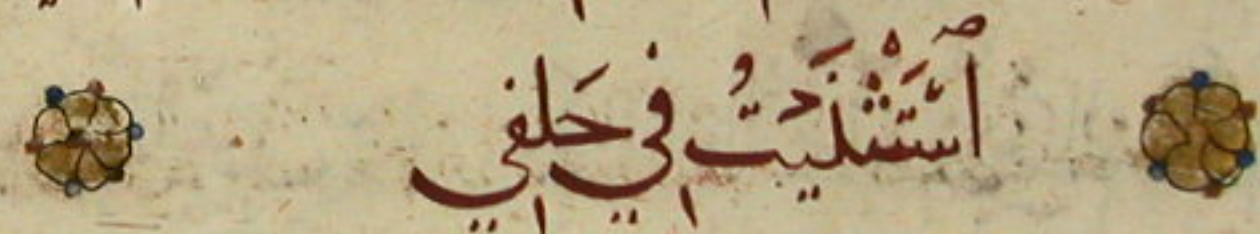 ٱسْتَثْنَيْتُ في حَلفي